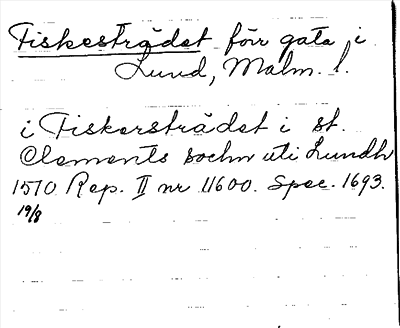 Fiskesträdet förr gata i
Lund, Malm. l.
i Fiskersträdet i st.
Clements sochn uti Lundh
1570 Rep. II nr 11600. Spec. 1693.
19/8